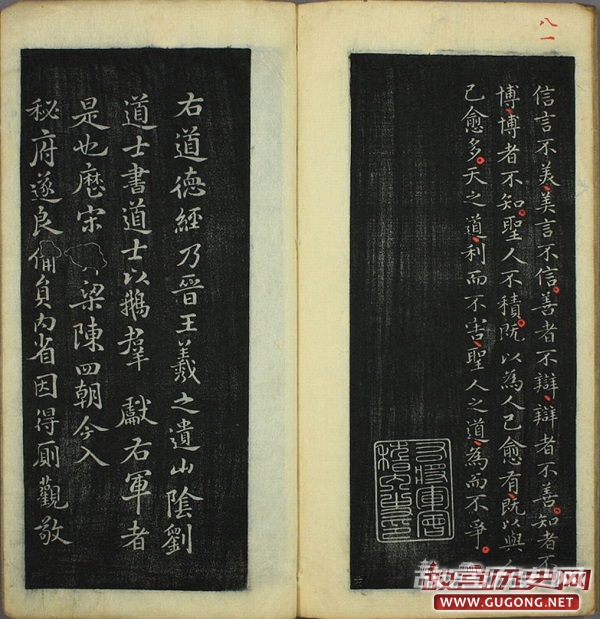 八一
信言不美美言不信善者不辯辯者不善知者不
博博者不知聖人不積既以為人己愈有既以與
己愈多天之道利而不害聖人之道為而不爭
右將軍會
稽內史印
右道德經乃晉王羲之遺山陰劉
道士書道士以鵝羣獻右軍者
是也歷宋梁陳四朝今入
秘府遂良備員內省因得厠觀敬
故宫历史网
WWW.GUGONG.NET